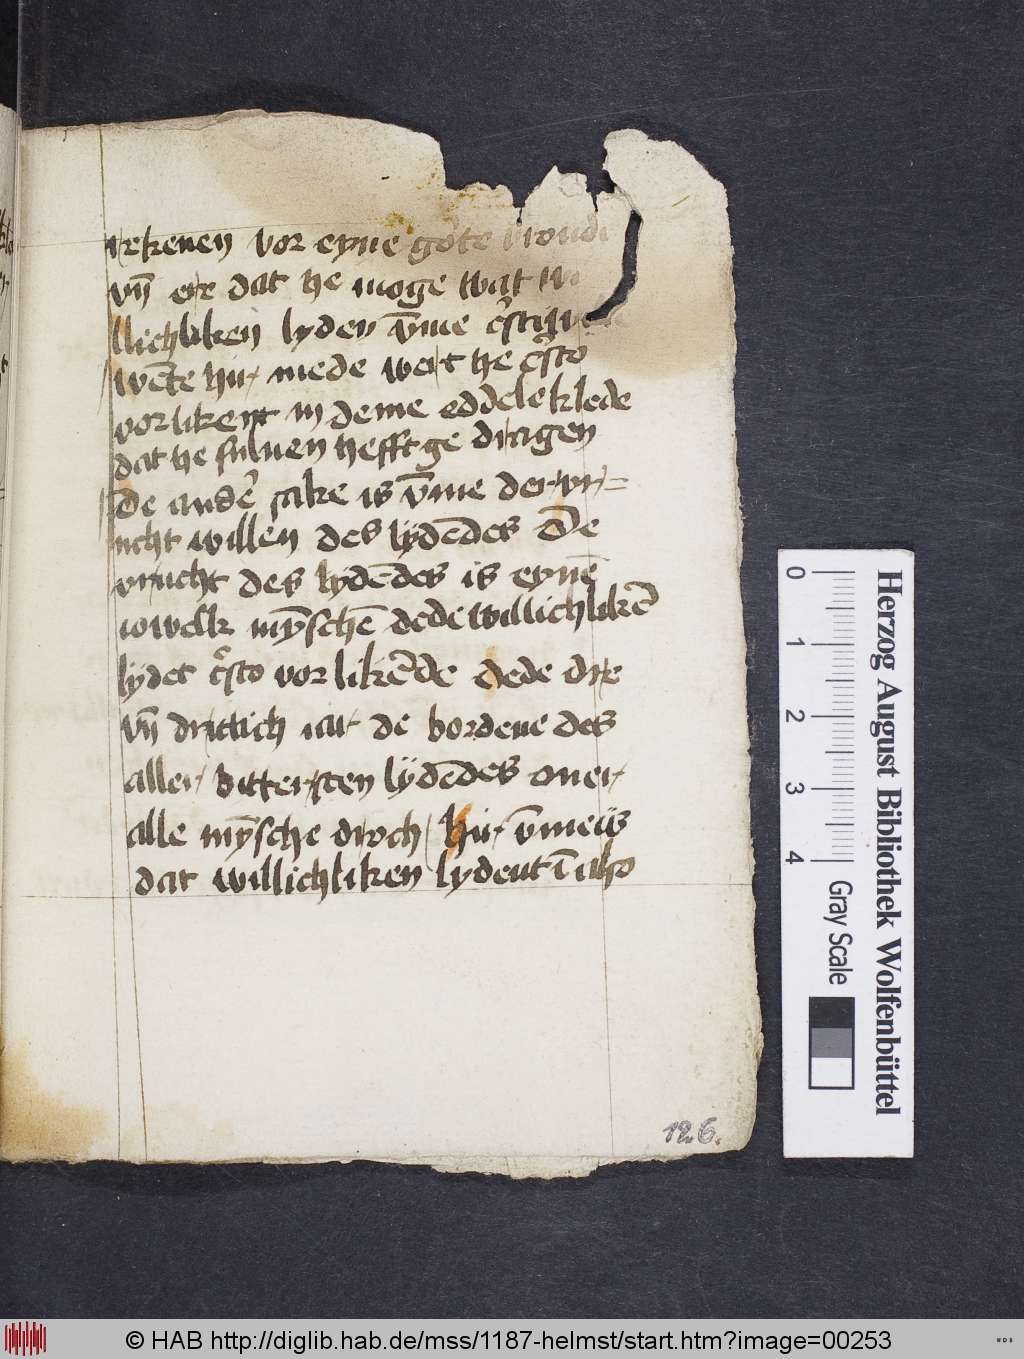 rekenen vor eyne gote vroude
vn̄ ere dat he moge wat
llichliken lyden v̄me
wēte hir mede wert he c̓sto
vorlikent in deme eddele klede
dat he suluen hefft ge dragen
De ander̓ sake is v̄me der vr=
ucht willen des lydēdes De
vrucht des lydēdes is eynē
iowelk mȳschē dede willichlikēd
lydet c̓sto vor likēde dede dre
vn̄ drittich iar de bordene des
aller bittersten lydēdes ouer
alle mȳsche droch hir v̄me is
dat willichliken lydent ī also
126.
0 1 2 3 4
Gray Scale
Herzog August Bibliothek Wolfenbüttel
© HAB http://diglib.hab.de/mss/1187-helmst/start.htm?image=00253
WDB